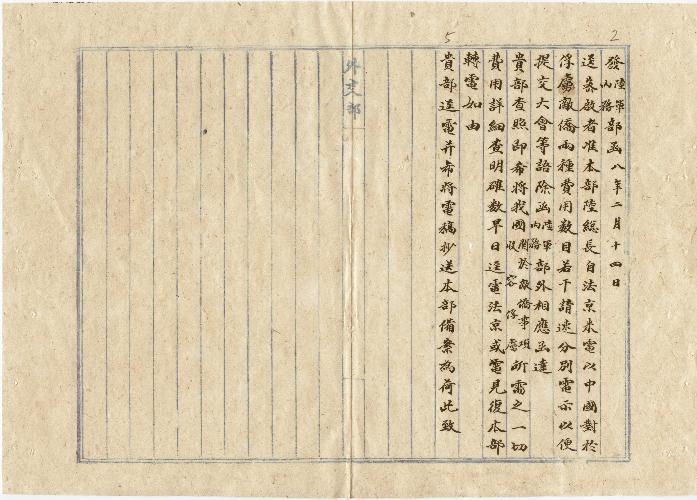 2
發陸軍內務部函八年二月十四日
逕啟者准本部陸總長自法京來電以中國對於
俘虜敵僑兩種費用數目若干請速分別電示以便
提交大會等語除函陸軍內務部外相應函達
貴部查照即希將我國關於敵僑事項收容俘虜所需之一切
費用詳細查明確數早日逕電法京或電見復本部
轉電如由
5
貴部逕電并希將電稿抄送本部備案為荷此致
外交部